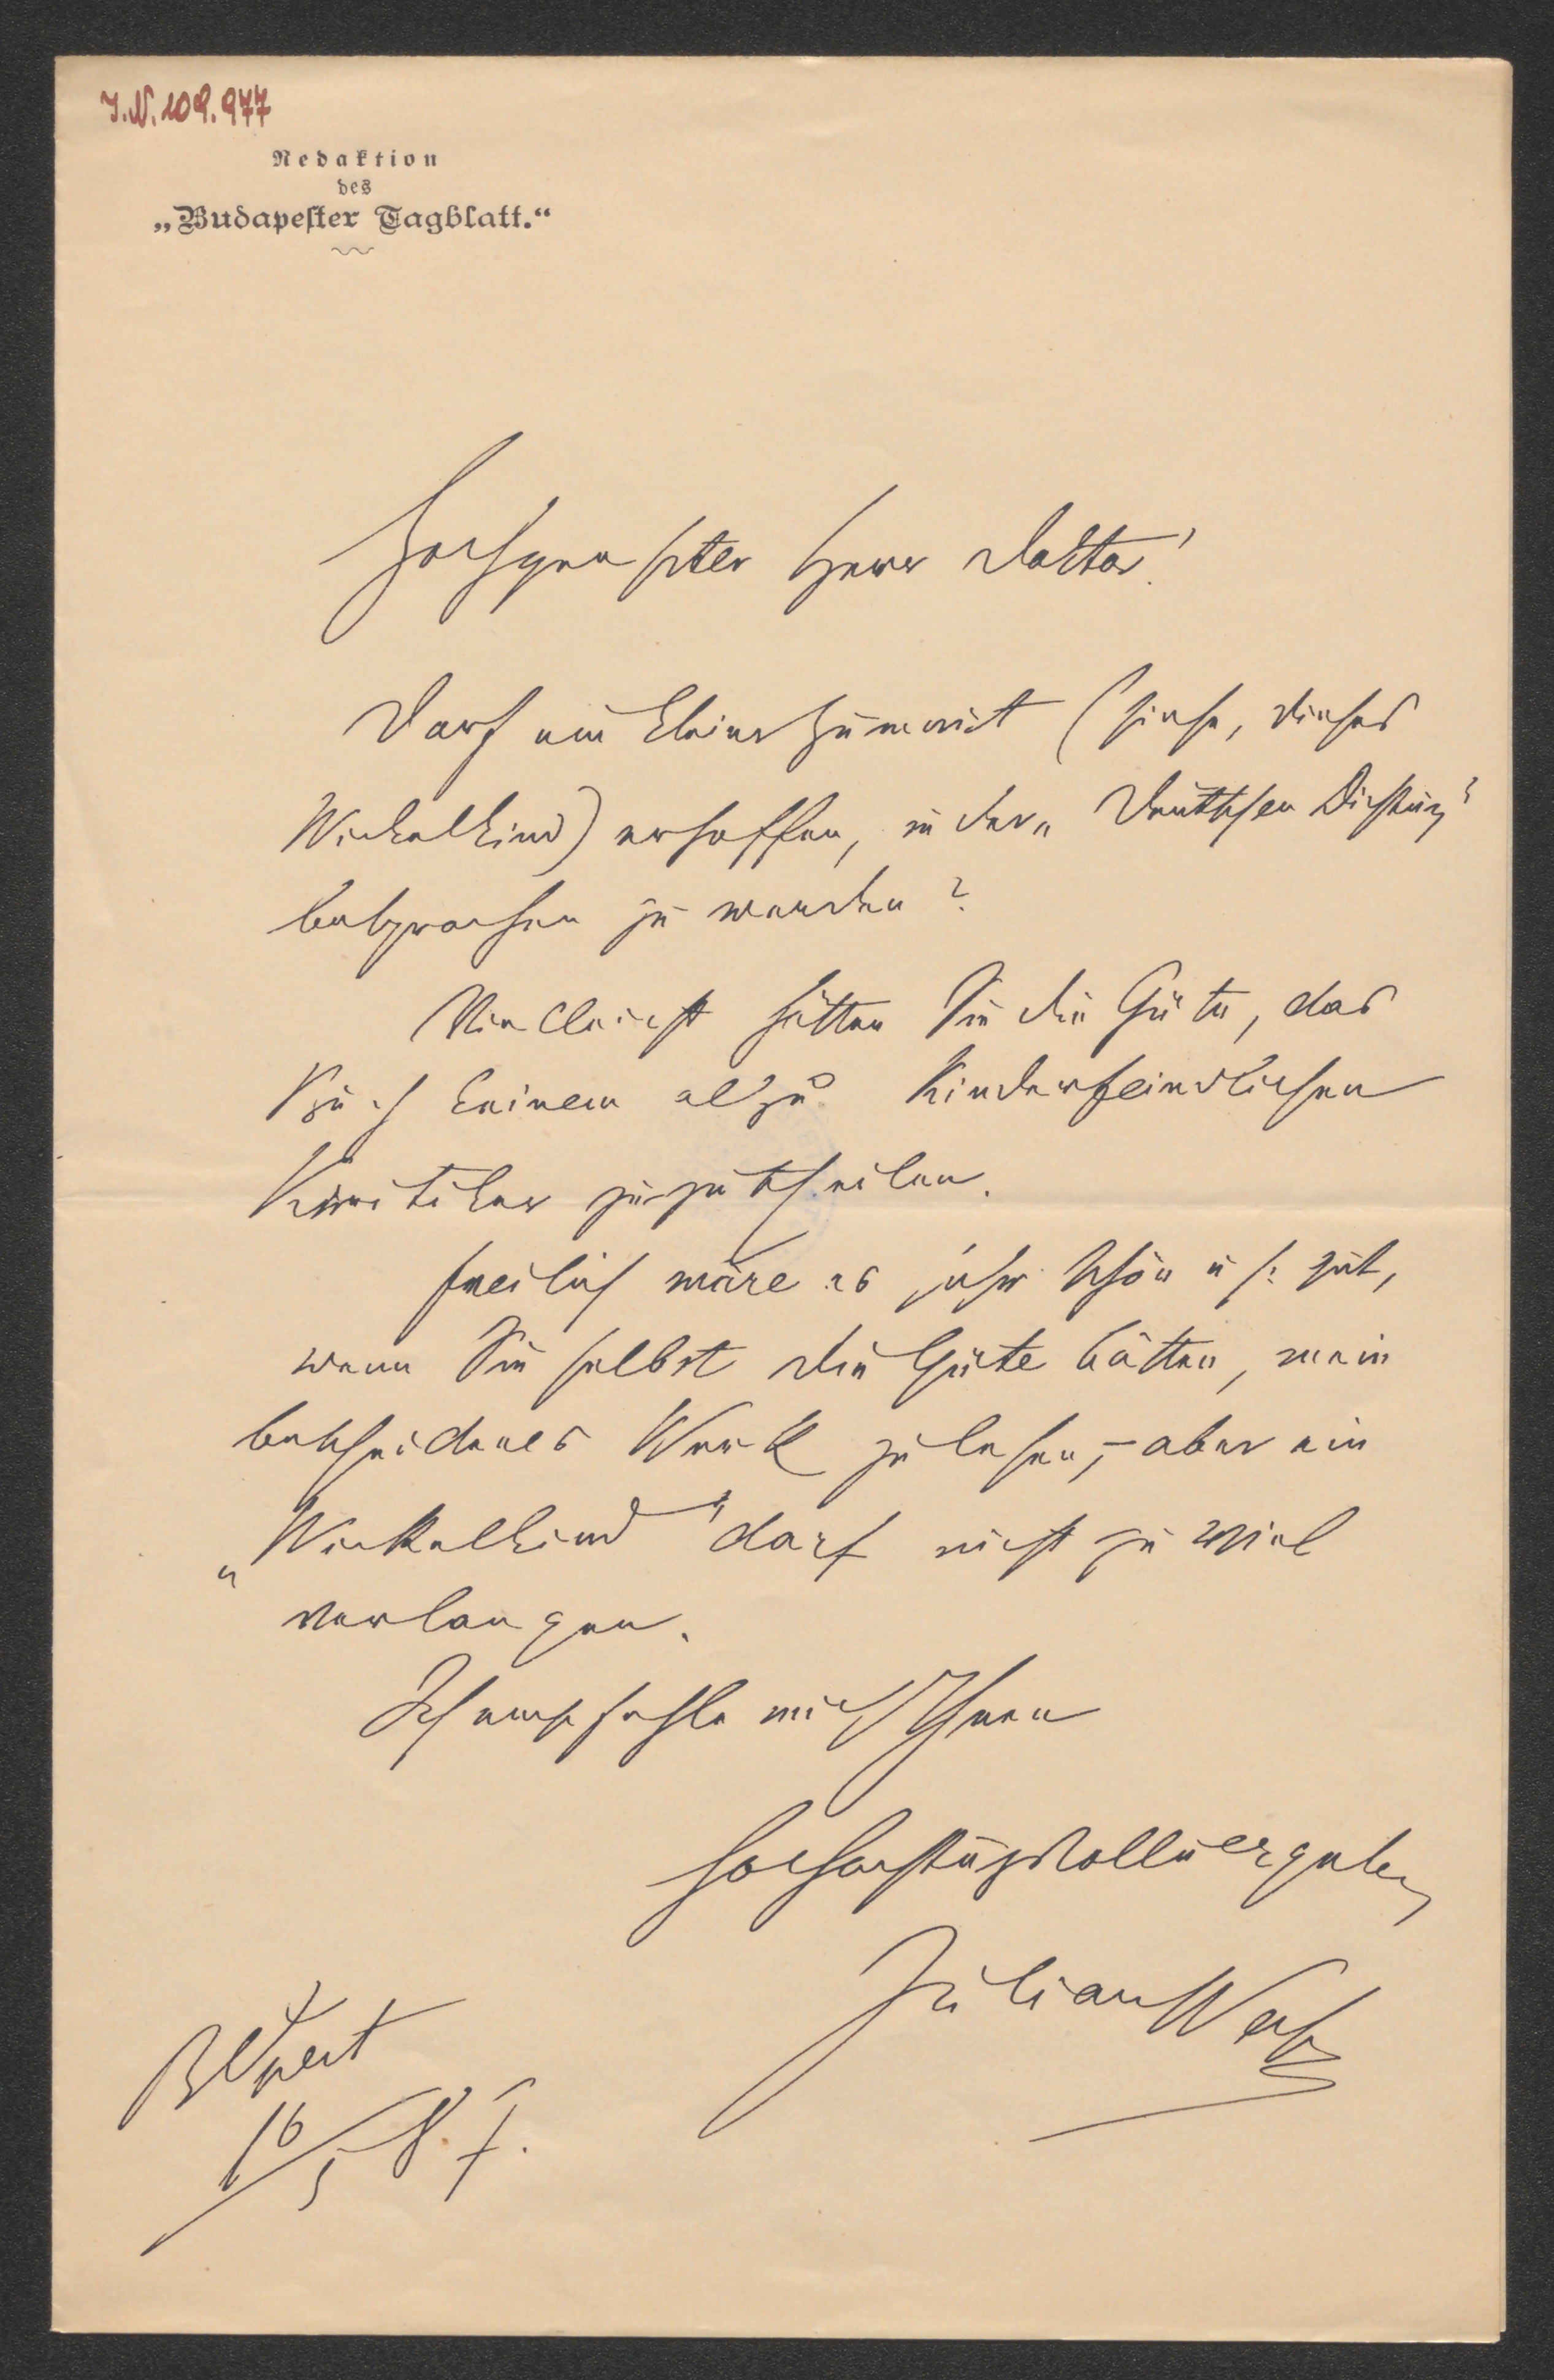 I.N. 109.977
Redaktion
des
„Budapester Tagblatt.“
Hochgeehrter Herr Doktor!
Darf ein kleiner Humorist (siehe, dieses
Wickelkind) erhoffen, in der „Deutschen Dichtung“
besprochen zu werden?
Vielleicht hätten Sie die Güte, das
Buch keinem allzu kinderfeindlichen
Kritiker zuzutheilen.
Freilich wäre es sehr schön u. s. gut,
wenn Sie selbst die Güte hätten, mein
bescheidenes Werk zu lesen, – aber ein
„Wickelkind“ darf nicht zu viel
verlangen.
Ich empfehle mich Ihnen
hochachtungsvollst ergeben
Julian Weiß
BPest
16/5 87.